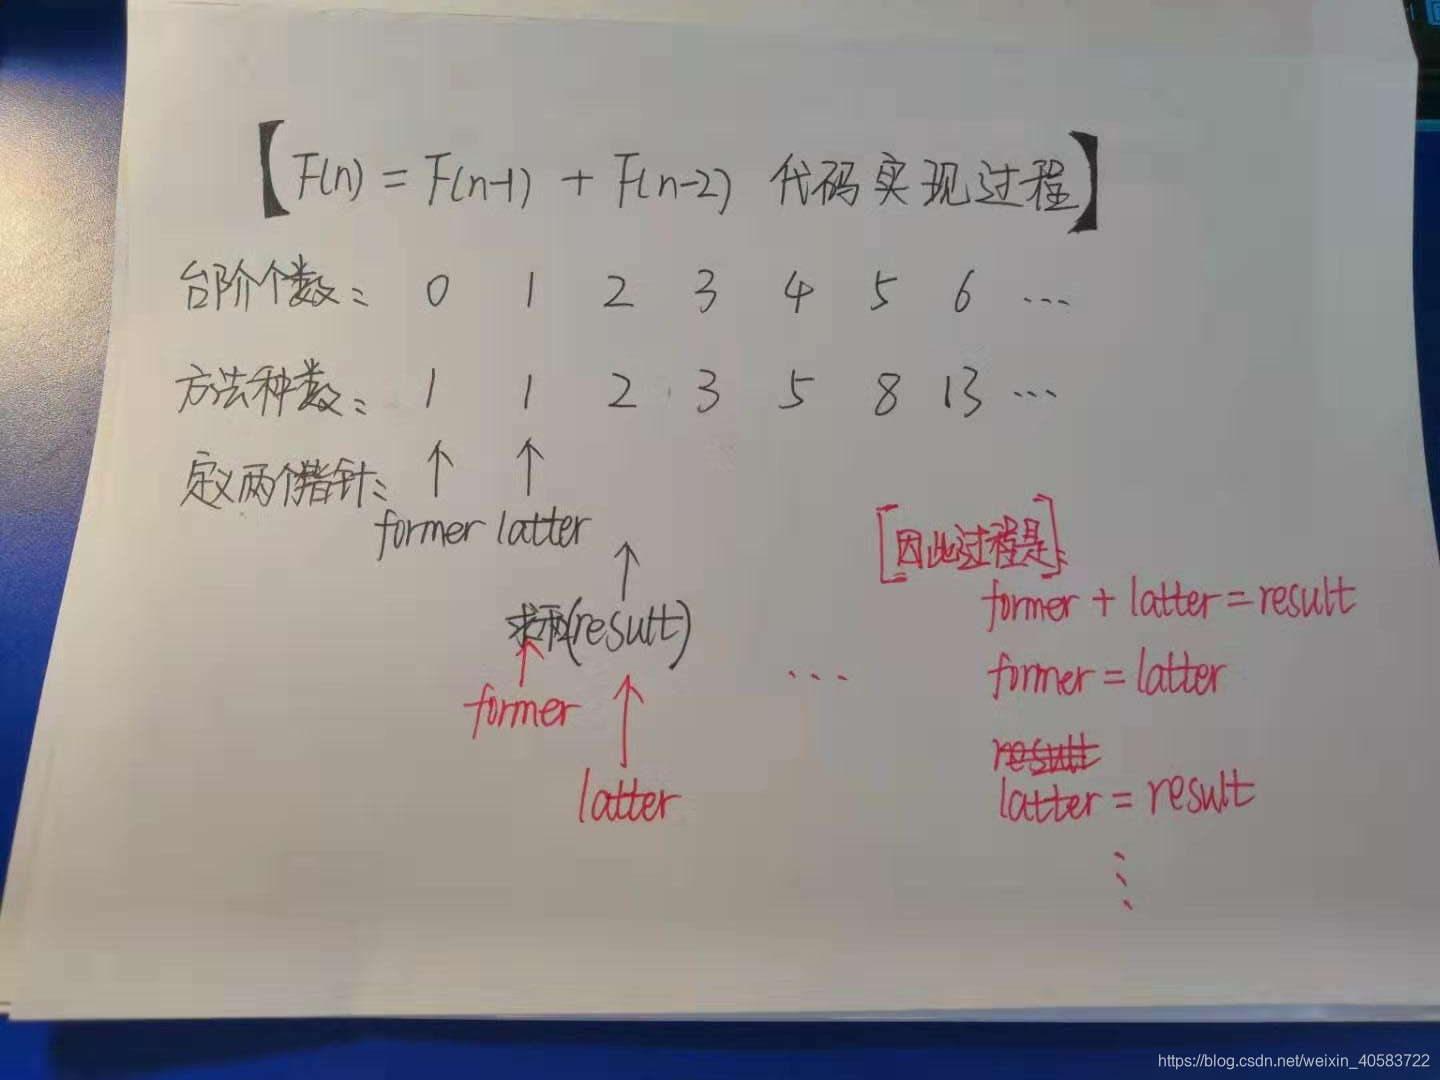 【F(n) = F(n-1) + F(n-2) 代码实现过程】
台阶个数: 0 1 2 3 4 5 6 ...
方法种数: 1 1 2 3 5 8 13 ...
定义两个指针:
former latter
求和(result)
former
latter
...
[因此过程是]:
former + latter = result
former = latter
result
latter = result
⋮
https://blog.csdn.net/weixin_40583722